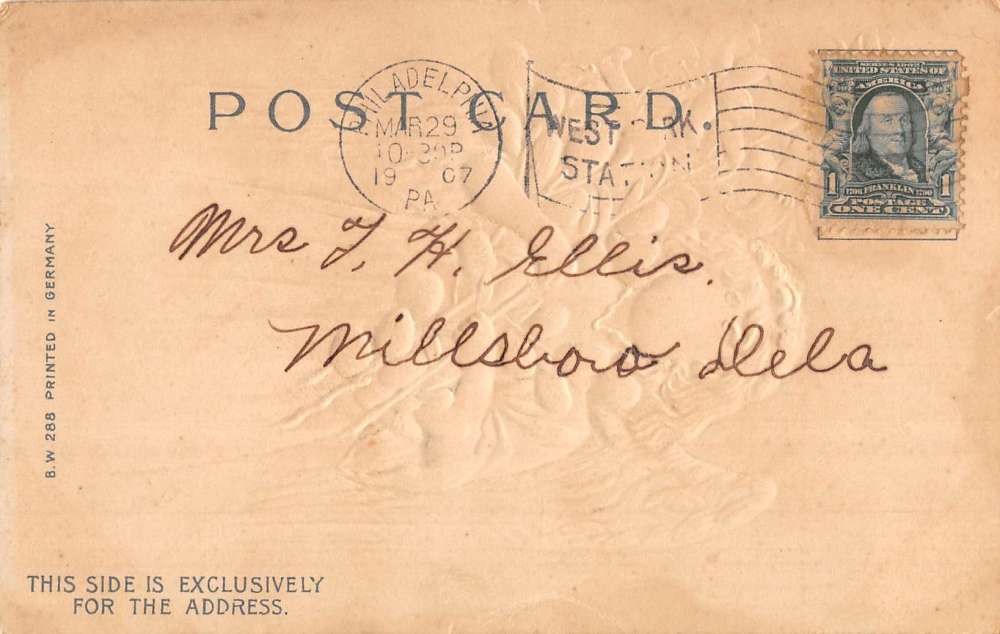 POST CARD.
PHILADELPHIA
MAR 29
19 07
PA
STATION
SERIES 1902
UNITED STATES OF
AMERICA
1 1706 FRANKLIN 1790 1
POSTAGE
ONE CENT
Mrs T. H. Ellis.
Millsboro Dela
B.W 288 PRINTED IN GERMANY
THIS SIDE IS EXCLUSIVELY
FOR THE ADDRESS.